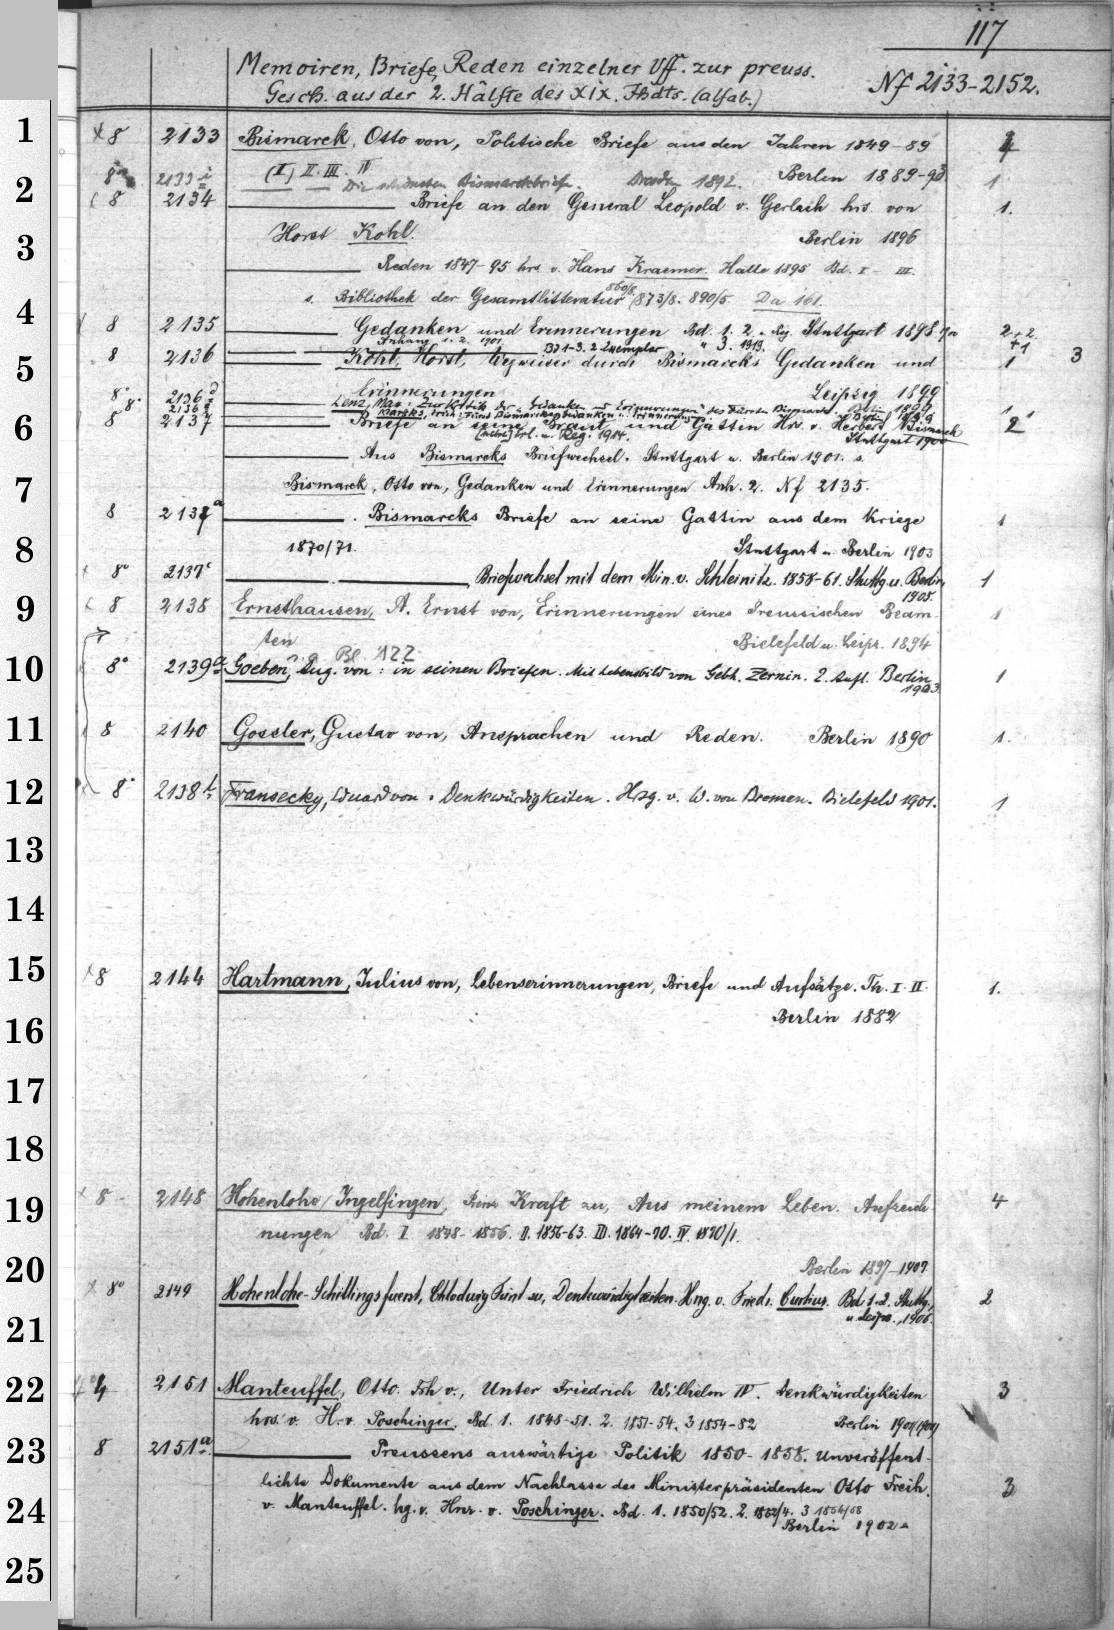 117
Memoiren, Briefe, Reden einzelner Vff. zur preuss.
Gesch. aus der 2. Hälfte des XIX. Jhdts. (alfab.)
Nf 2133-2152.
1
8 2133 Bismarck, Otto von, Politische Briefe aus den Jahren 1849-89
(I) II. III. IV Berlin 1889-93
2
2133 Die schönsten Bismarckbriefe. Dresden 1892. 1
8 2134 Briefe an den General Leopold v. Gerlach hrs. von 1.
3
Horst Kohl. Berlin 1896
Reden 1847-95 hrs. v. Hans Kraemer. Halle 1895 Bd. I - III.
4
s. Bibliothek der Gesamtlitteratur 860/8. 873/8. 890/5. Da 161.
8 2135 Gedanken und Erinnerungen Bd. 1. 2. Stuttgart 1898 2+2
Anhang 1. 2. 1901. Bd 1-3. 2 Exemplar " 3. 1919. +1
5
8 2136 Kohl, Horst, Wegweiser durch Bismarcks Gedanken und 1 3
Erinnerungen Leipzig 1899
8° 2136 Lenz, Max: Zur Kritik der "Gedanken und Erinnerungen" des Fürsten Bismarck. Berlin 1899. 1
8° 2136 Marcks, Erich: Fürst Bismarcks Gedanken u. Erinnerungen. Berlin 1899 1
6
8 2137 Briefe an seine Braut und Gattin Hrs. v. Herbert Bismarck 2
Stuttgart 1900
Aus Bismarcks Briefwechsel. Stuttgart u. Berlin 1901. s.
7
Bismarck, Otto von, Gedanken und Erinnerungen Anh. 2. Nf 2135.
8 2137a Bismarcks Briefe an seine Gattin aus dem Kriege 1
8
1870/71. Stuttgart u. Berlin 1903
8° 2137c Briefwechsel mit dem Min. v. Schleinitz. 1858-61. Stuttg. u. Berlin 1
1905.
9
8 2138 Ernsthausen, A. Ernst von, Erinnerungen eines Preussischen Beam- 1
ten Bielefeld u. Leipz. 1894
Bl. 122
10
8° 2139a Goeben, Aug. von: in seinen Briefen. Mit Lebensbild von Gebh. Zernin. 2. Aufl. Berlin 1
1903.
11
8 2140 Gossler, Gustav von, Ansprachen und Reden. Berlin 1890 1.
12
8° 2138b Fransecky, Eduard von. Denkwürdigkeiten. Hsg. v. W. von Bremen. Bielefeld 1901. 1
13
14
15
8 2144 Hartmann, Julius von, Lebenserinnerungen, Briefe und Aufsätze. Th. I. II. 1.
16
Berlin 1882
17
18
19
8 2148 Hohenlohe/Ingelfingen, Prinz Kraft zu, Aus meinem Leben. Aufzeich- 4
nungen Bd. I 1848-1856. II. 1856-63. III. 1864-70. IV 1870/1.
20
Berlin 1897-1907
8° 2149 Hohenlohe-Schillingsfuerst, Chlodwig Fürst zu, Denkwürdigkeiten. Hng. v. Friedr. Curtius. Bd. 1.2. Stuttg. 2
u. Leipz., 1906.
21
22
4 2151 Manteuffel, Otto Frh v., Unter Friedrich Wilhelm IV. Denkwürdigkeiten 3
hrs. v. H. v. Poschinger. Bd. 1. 1848-51. 2. 1851-54. 3 1854-82 Berlin 1901/1901
23
8 2151a Preussens auswärtige Politik 1850-1858. Unveröffent-
lichte Dokumente aus dem Nachlasse des Ministerpräsidenten Otto Freih. 3
24
v. Manteuffel. hg. v. Hnr. v. Poschinger. Bd. 1. 1850/52. 2. 1852/4. 3 1854/58
Berlin 1902
25